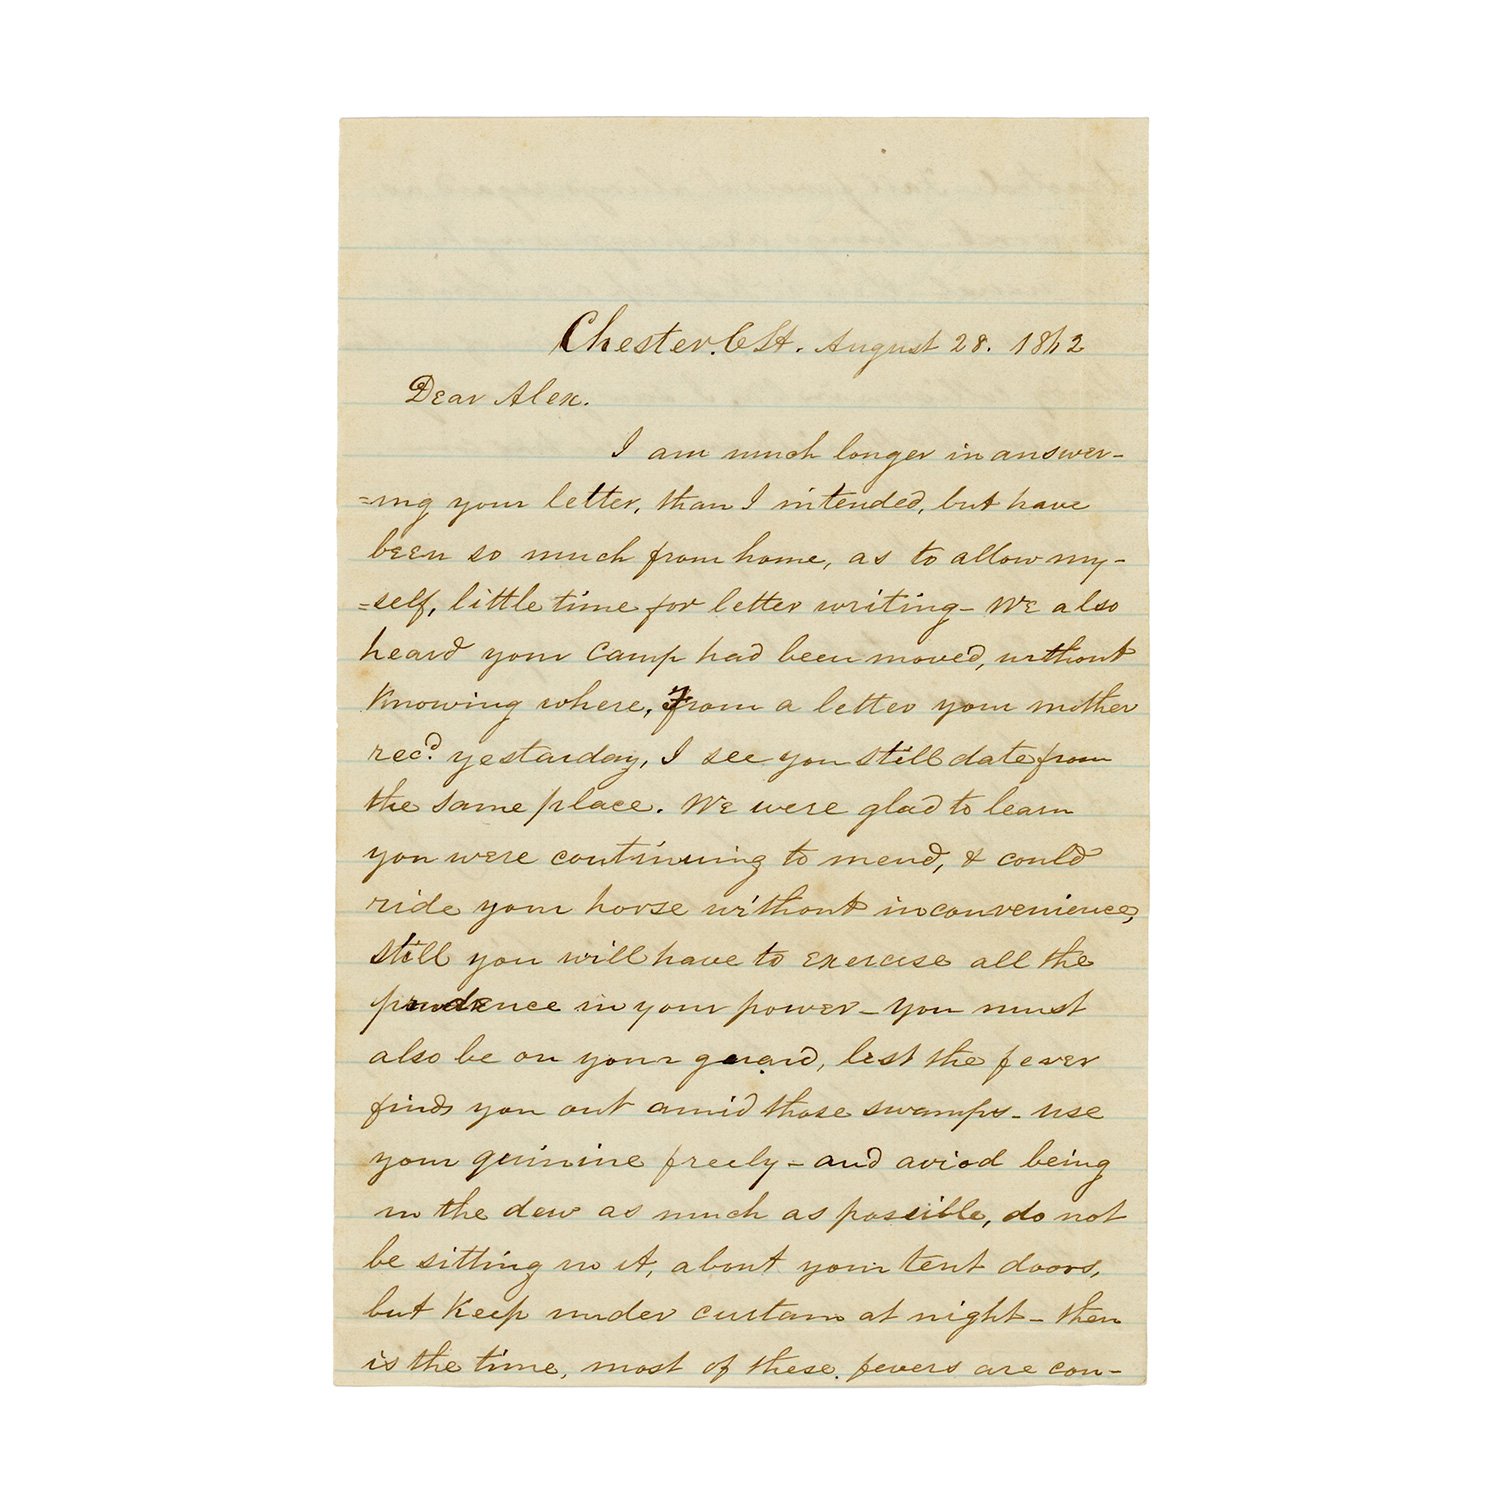 Chester. C.H. August 28. 1862
Dear Alex.
I am much longer in answer-
=ing your letter, than I intended, but have
been so much from home, as to allow my-
=self, little time for letter writing - We also
heard your camp had been moved, without
Knowing where, From a letter your mother
recd. yestarday, I see you still date from
the same place. We were glad to learn
you were continuing to mend, & could
ride your horse without inconvenience,
still you will have to exercise all the
prudence in your power - you must
also be on your guard, lest the fever
finds you out amid those swamps - use
your quinine freely - and aviod being
in the dew as much as possible, do not
be sitting in it, about your tent doors,
but Keep under curtain at night - then
is the time, most of these fevers are con-